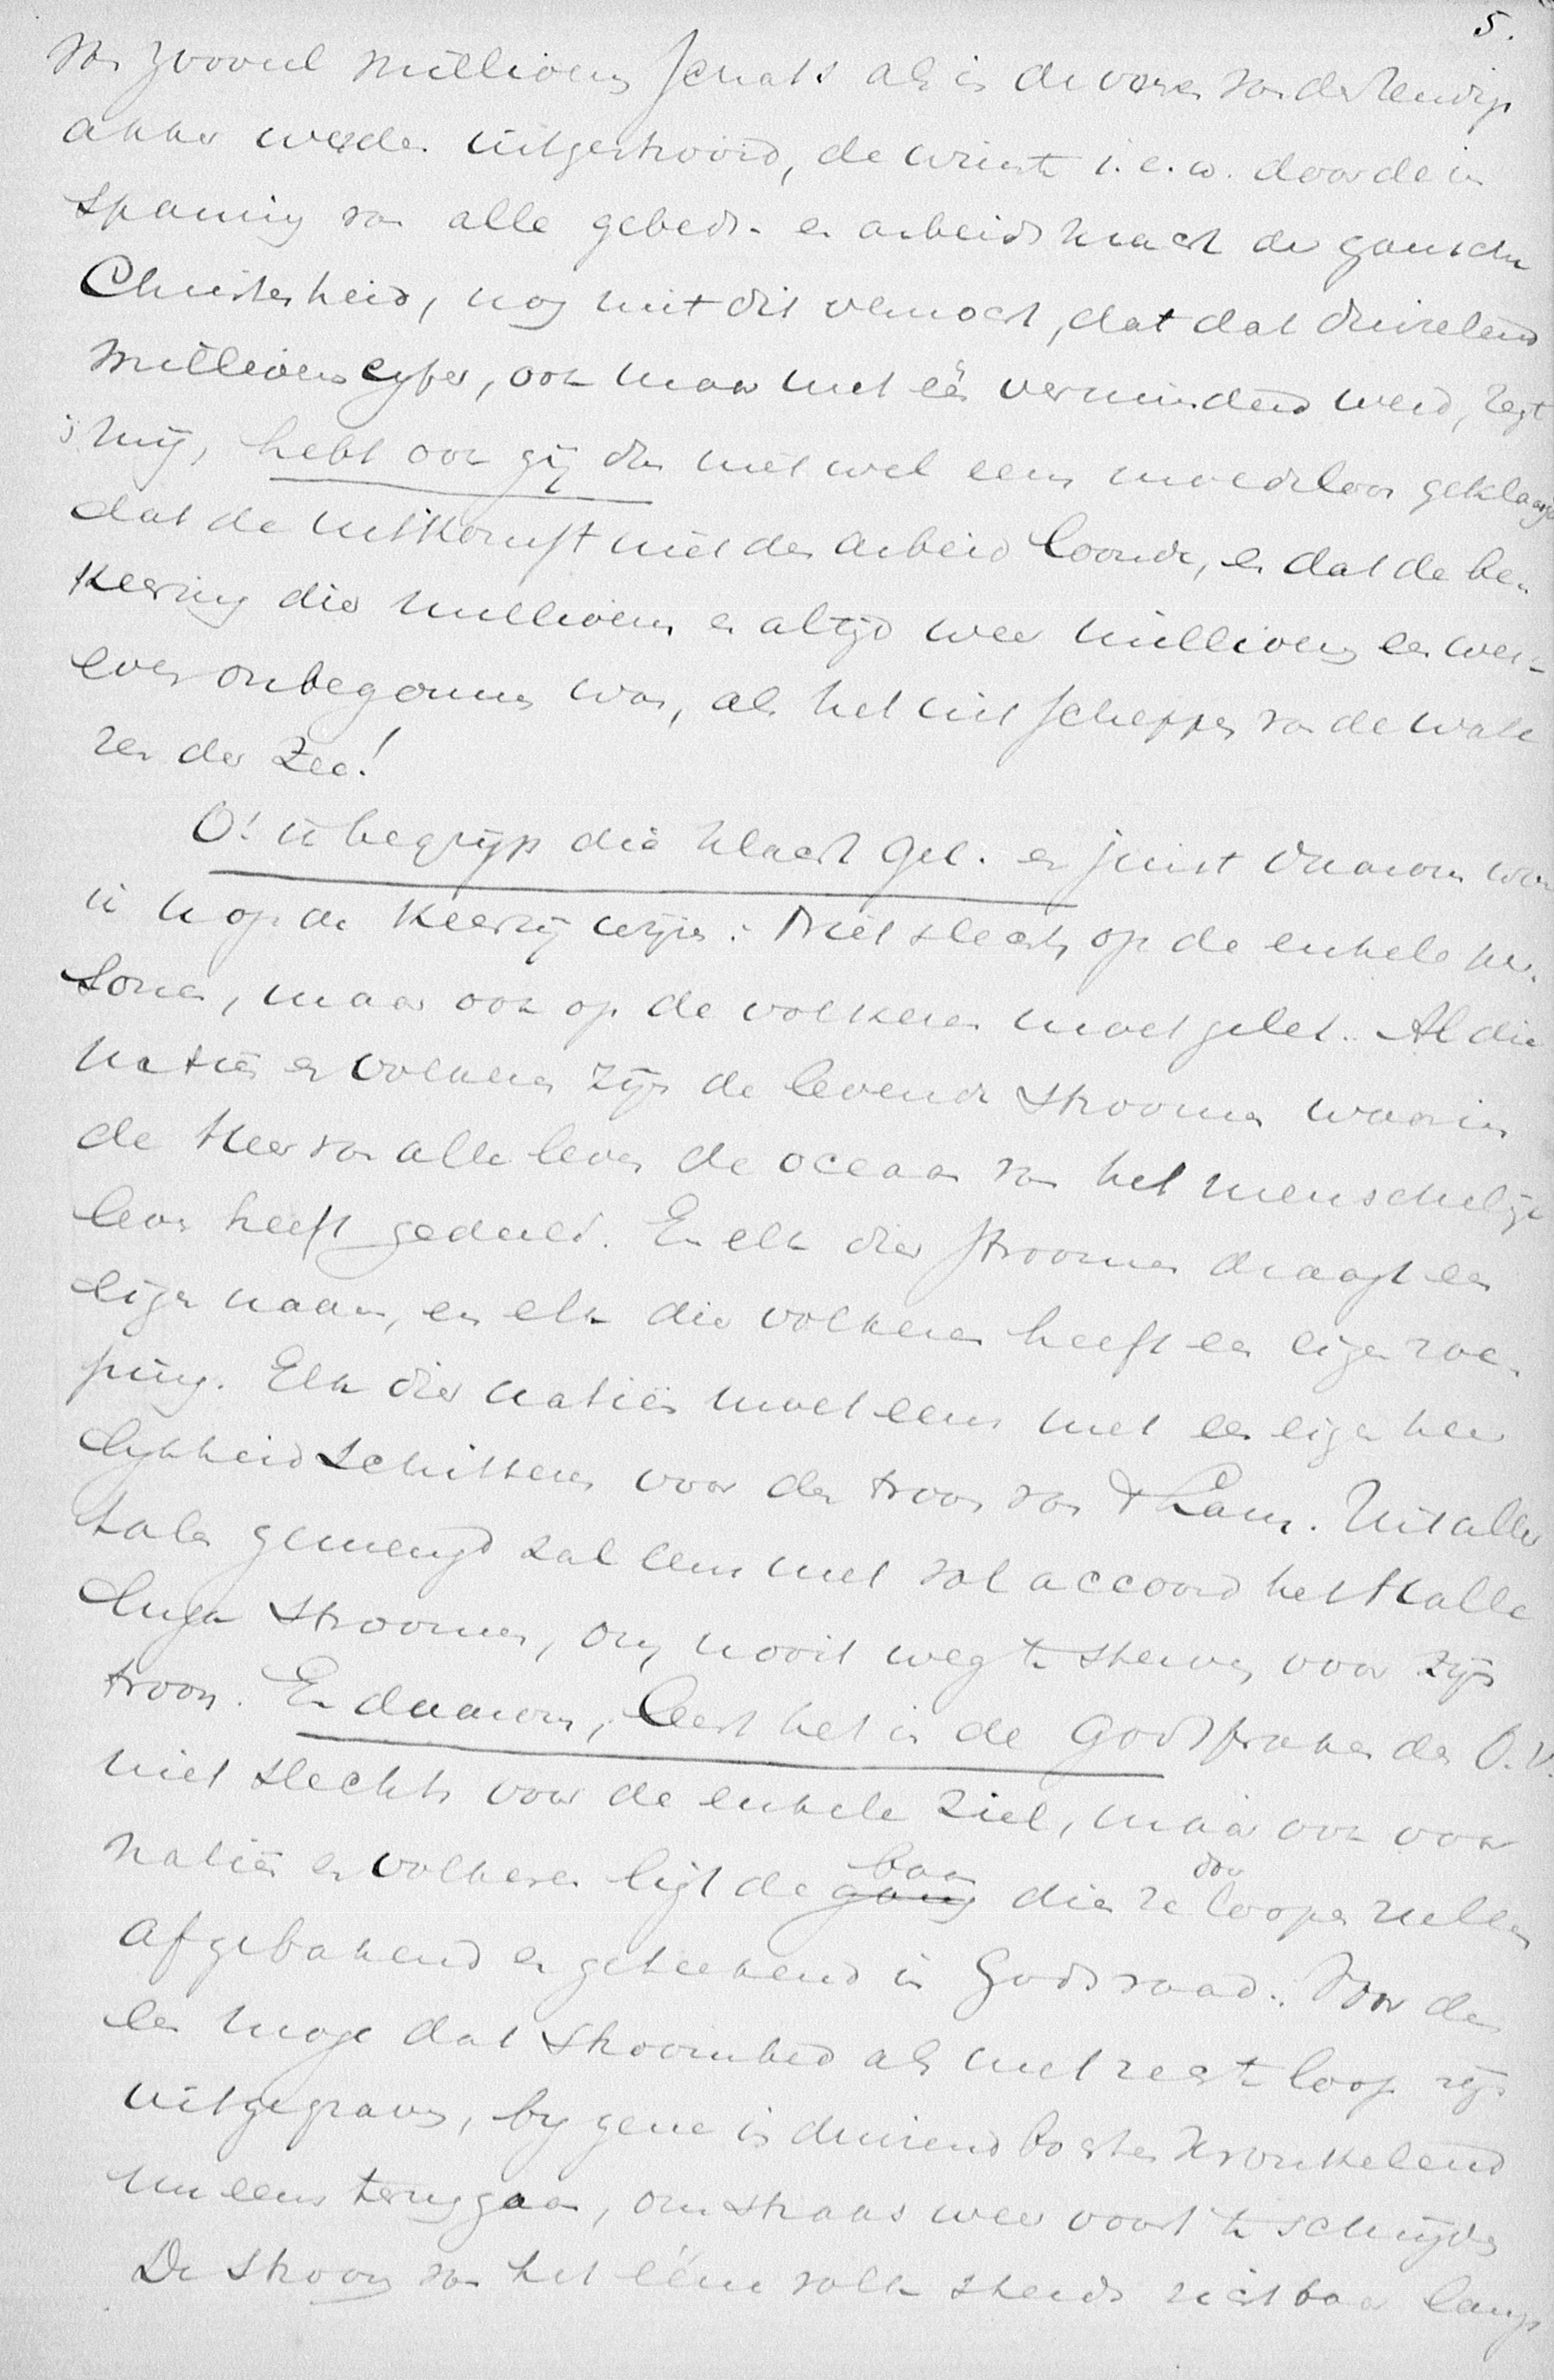 5.
van zooveel millioenen schats als in de voren van den zendings
akker werden uitgestrooid, de winste i. e. w. door de in
spanning van alle gebeds- en arbeidskracht der gansche
Christenheid, nog niet dit vermocht, dat dat duizelend
millioenencyfer, ook maar met één verminderd werd, zegt
mij, hebt ook gij dan niet wel eens moedeloos geklaagd
dat de uitkomst niet den arbeid loonde, en dat de be-
keering dier millioenen en altijd weer millioenen een werk
even onbegonnen was, als het uitscheppen van de wate
ren der Zee!
O! ik begrijp die klacht Gel. en juist daarom
ik u op de keerzij wijzen: Niet slechts op de enkele per-
sonen, maar ook op de volkeren moet gelet. Al die
natiën en volkeren zijn de levende stroomen waarin
de Heer van alle leven de oceaan van het menschelijk
leven heeft gedeeld. En elk dier stroomen draagt een
eigen naam, en elk dier volkeren heeft een eigen roe-
ping. Elk dier natiën moet eens met een eigen heer
lykheid schitteren voor den troon van 't Lam. Uit aller
talen gemengd zal eens met vol accoord het Halle
luja stroomen, om nooit weg te sterven voor zijn
troon. En daarom, leert het in de Godspraken des O. V.
niet slechts voor de enkele ziel, maar ook voor
natiën en volkeren ligt de gang baan dien ze door loopen zullen
afgebakend en geteekend in Gods raad. Voor den
een moge dat stroombed als met rechte loop zijn
uitgegraven, by gene in duizend bochten kronkelend
nu eens teruggaan, om straks weer voort te schrijden
De stroom van het ééne volk steeds zichtbaar langs